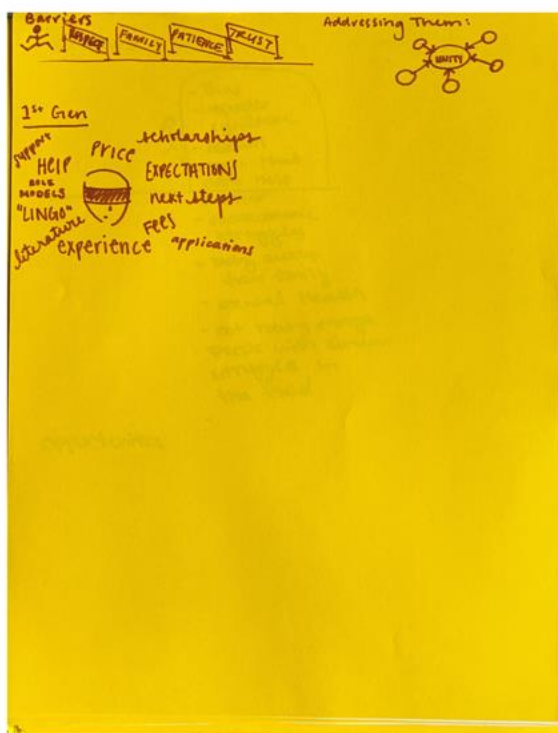 Barriers
RESPECT FAMILY PATIENCE TRUST
Addressing Them:
UNITY
1st Gen
support
HELP
ROLE
MODELS
"LINGO"
literature
experience
PRICE
scholarships
EXPECTATIONS
next steps
FEES
applications